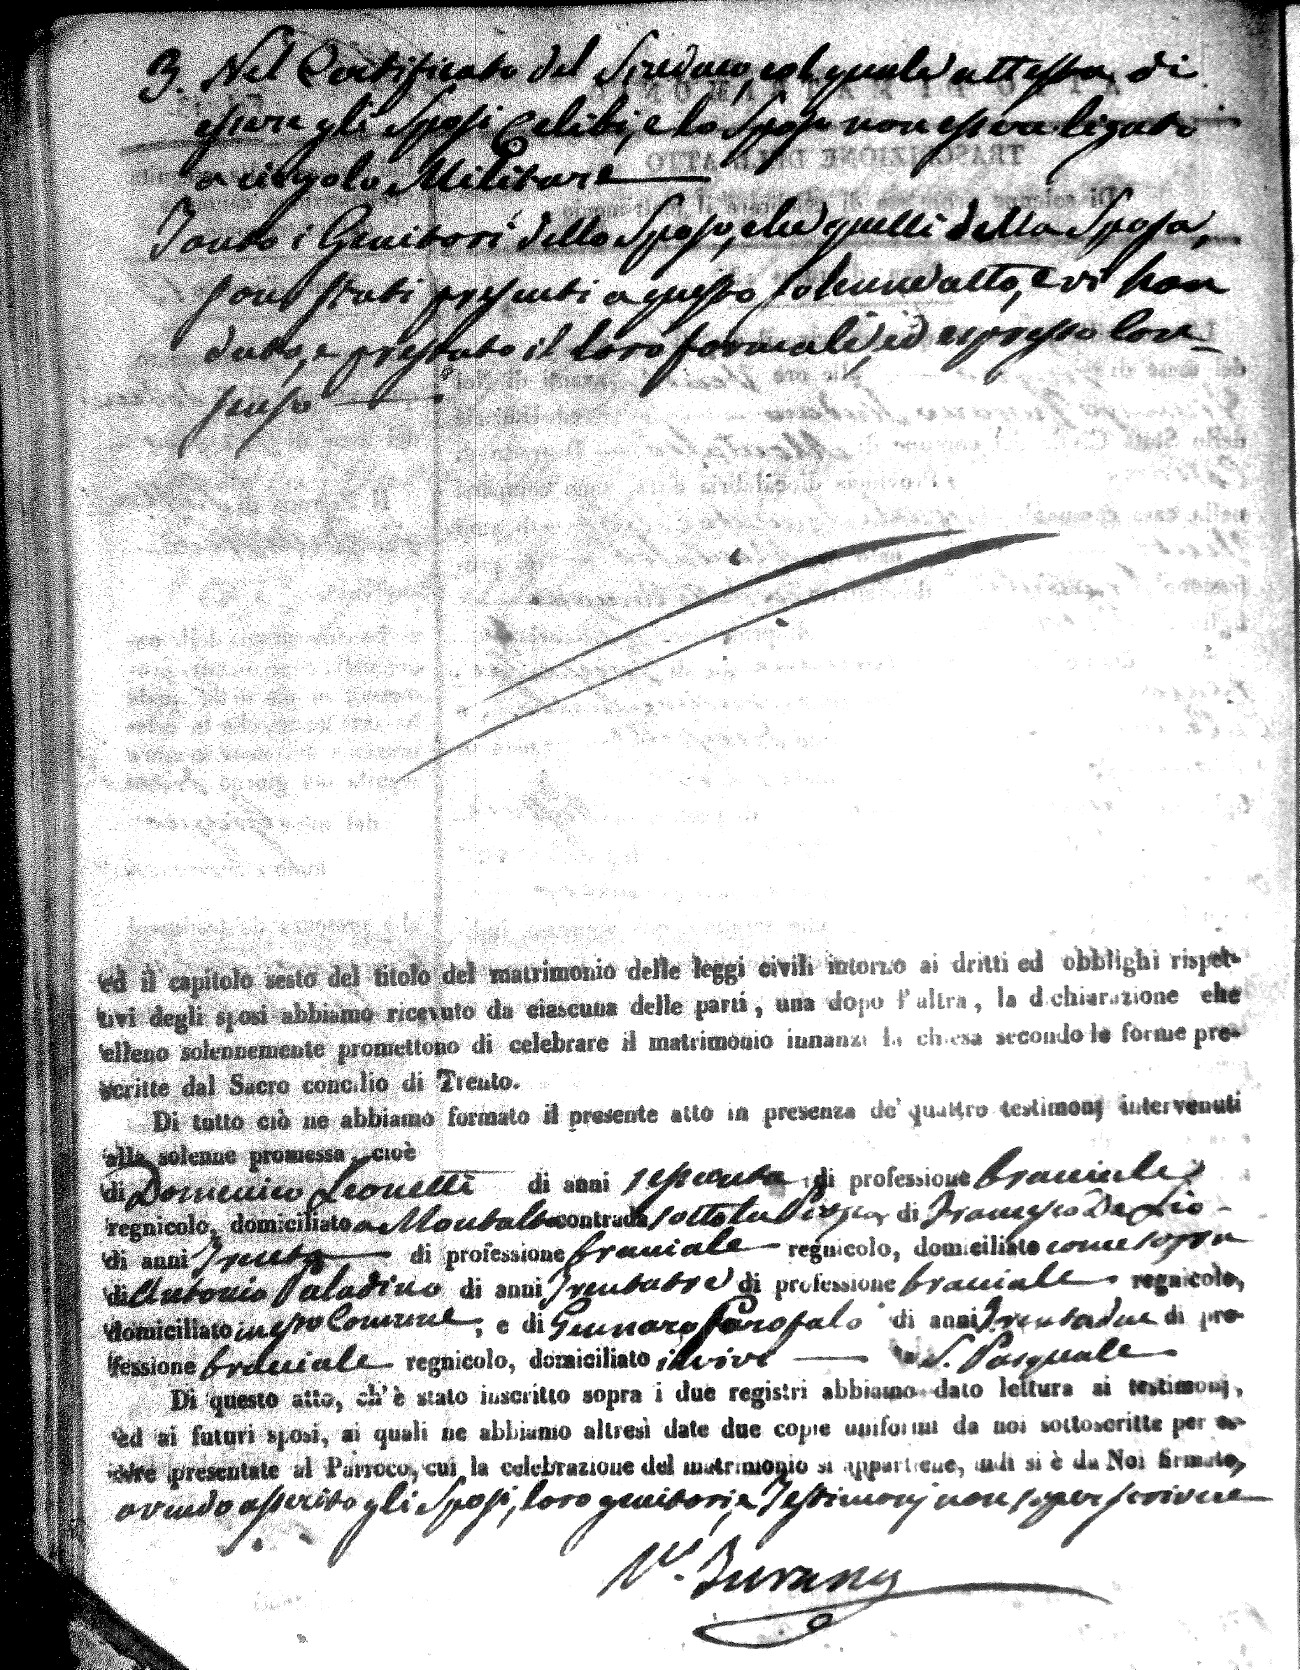 3. Nel Certificato del Sindaco, col quale attesta di
essere gli Sposi Celibi, e lo Sposo non essere ligato
a cingolo Militare
Tanto i Genitori dello Sposo, che quelli della Sposa,
sono stati presenti a questo solenne atto, e vi han
dato, e prestato il loro formale, ed espresso con-
senso
ed il capitolo sesto del titolo del matrimonio delle leggi civili intorno ai dritti ed obblighi rispet-
tivi degli sposi abbiamo ricevuto da ciascuna delle parti, una dopo l'altra, la dichiarazione che
elleno solennemente promettono di celebrare il matrimonio innanzi la chiesa secondo le forme pre-
scritte dal Sacro concilio di Trento.
Di tutto ciò ne abbiamo formato il presente atto in presenza de' quattro testimonj intervenuti
alla solenne promessa, cioè
di Domenico Leonetti di anni sessanta di professione braciale
regnicolo, domiciliato a Montalto contrada sotto la di Francesco De Lio
di anni Trenta di professione braciale regnicolo, domiciliato come sopra
di Antonio Paladino di anni Trentatre di professione braciale regnicolo,
domiciliato in esso Comune, e di Gennaro Garofalo di anni Trentadue di pro-
fessione braciale regnicolo, domiciliato ivi S. Pasquale
Di questo atto, ch'è stato inscritto sopra i due registri abbiamo dato lettura ai testimonj,
ed ai futuri sposi, ai quali ne abbiamo altresì date due copie uniformi da noi sottoscritte per es-
sere presentate al Parroco, cui la celebrazione del matrimonio si appartiene, indi si è da Noi firmato,
avendo asserito gli Sposi, loro genitori, e Testimonj non saper scrivere